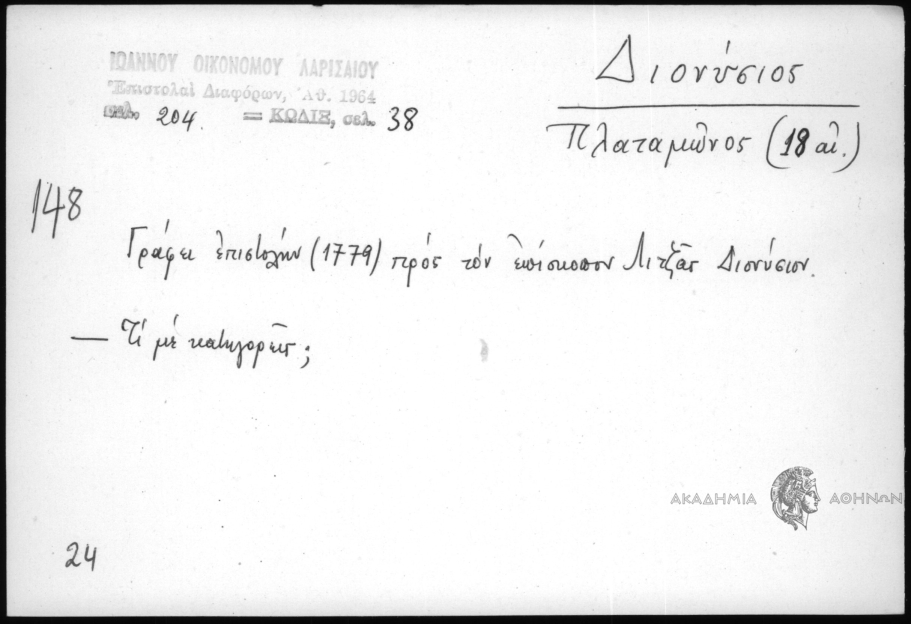 ΙΩΑΝΝΟΥ ΟΙΚΟΝΟΜΟΥ ΛΑΡΙΣΑΙΟΥ
Ἐπιστολαὶ Διαφόρων, Ἀθ. 1964
σελ. 204. = ΚΩΔΙΞ, σελ. 38
Διονύσιος
Πλαταμῶνος (18 αἰ.)
148
Γράφει ἐπιστολήν (1779) πρός τόν ἐπίσκοπον Λιτζᾶς Διονύσιον.
— Τί μέ κατηγορεῖς;
ΑΚΑΔΗΜΙΑ ΑΘΗΝΩΝ
24